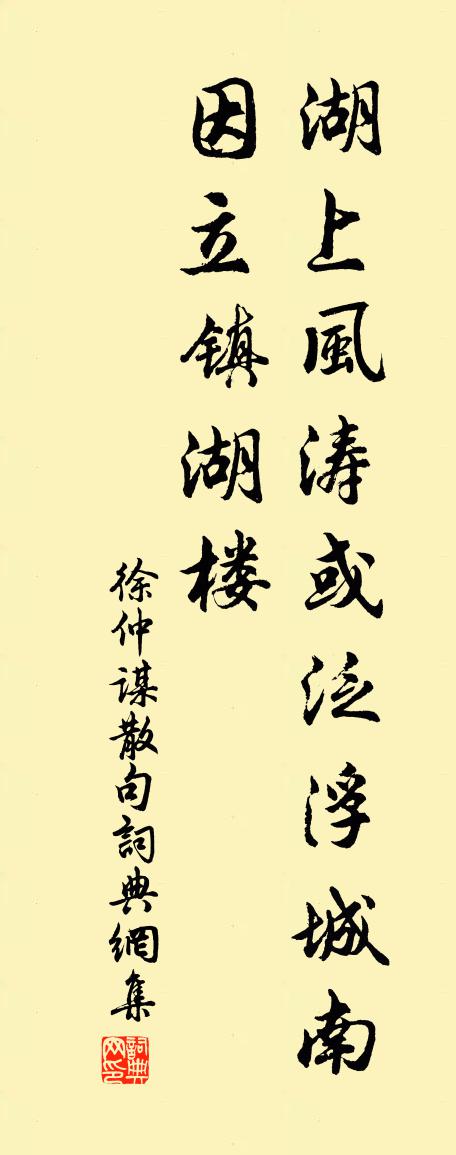 湖上風涛或泛浮城南
因立镇湖楼
徐仲谋散句詞典網集
詞典网印